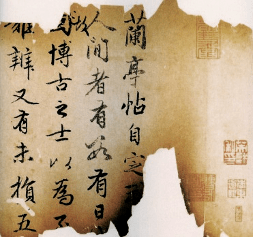 蘭亭帖自定
人間者有數有日
博古之士以為
難辨又有未損五